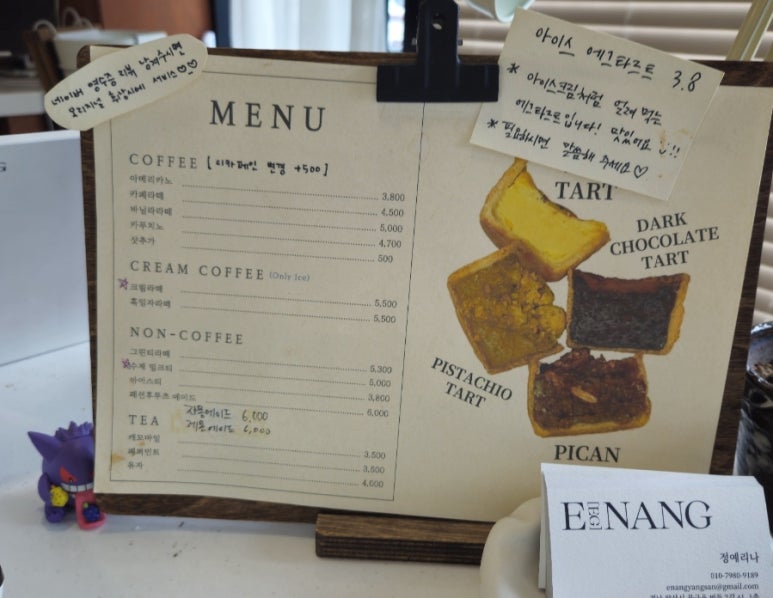 네이버 영수증 리뷰 남겨주시면
오리지널 휘낭시에 서비스♡♡
MENU
COFFEE [디카페인 변경 +500]
아메리카노 3,800
카페라떼 4,500
바닐라라떼 5,000
카푸치노 4,700
샷추가 500
CREAM COFFEE (Only Ice)
크림라떼 5,500
흑임자라떼 5,500
NON-COFFEE
그린티라떼 5,300
수제 밀크티 5,000
아이스티 3,800
패션후루츠 에이드 6,000
자몽에이드 6,000
레몬에이드 6,000
TEA
캐모마일 3,500
페퍼민트 3,500
유자 4,000
아이스 에그타르트 3.8
* 아이스크림처럼 얼려 먹는
에그타르트입니다! 맛있어요 !!
* 필요하시면 말씀해 주세요♡
TART
DARK
CHOCOLATE
TART
PISTACHIO
TART
PICAN
E[EGG]NANG
정예리나
010-7980-9189
enangyangsan@gmail.com